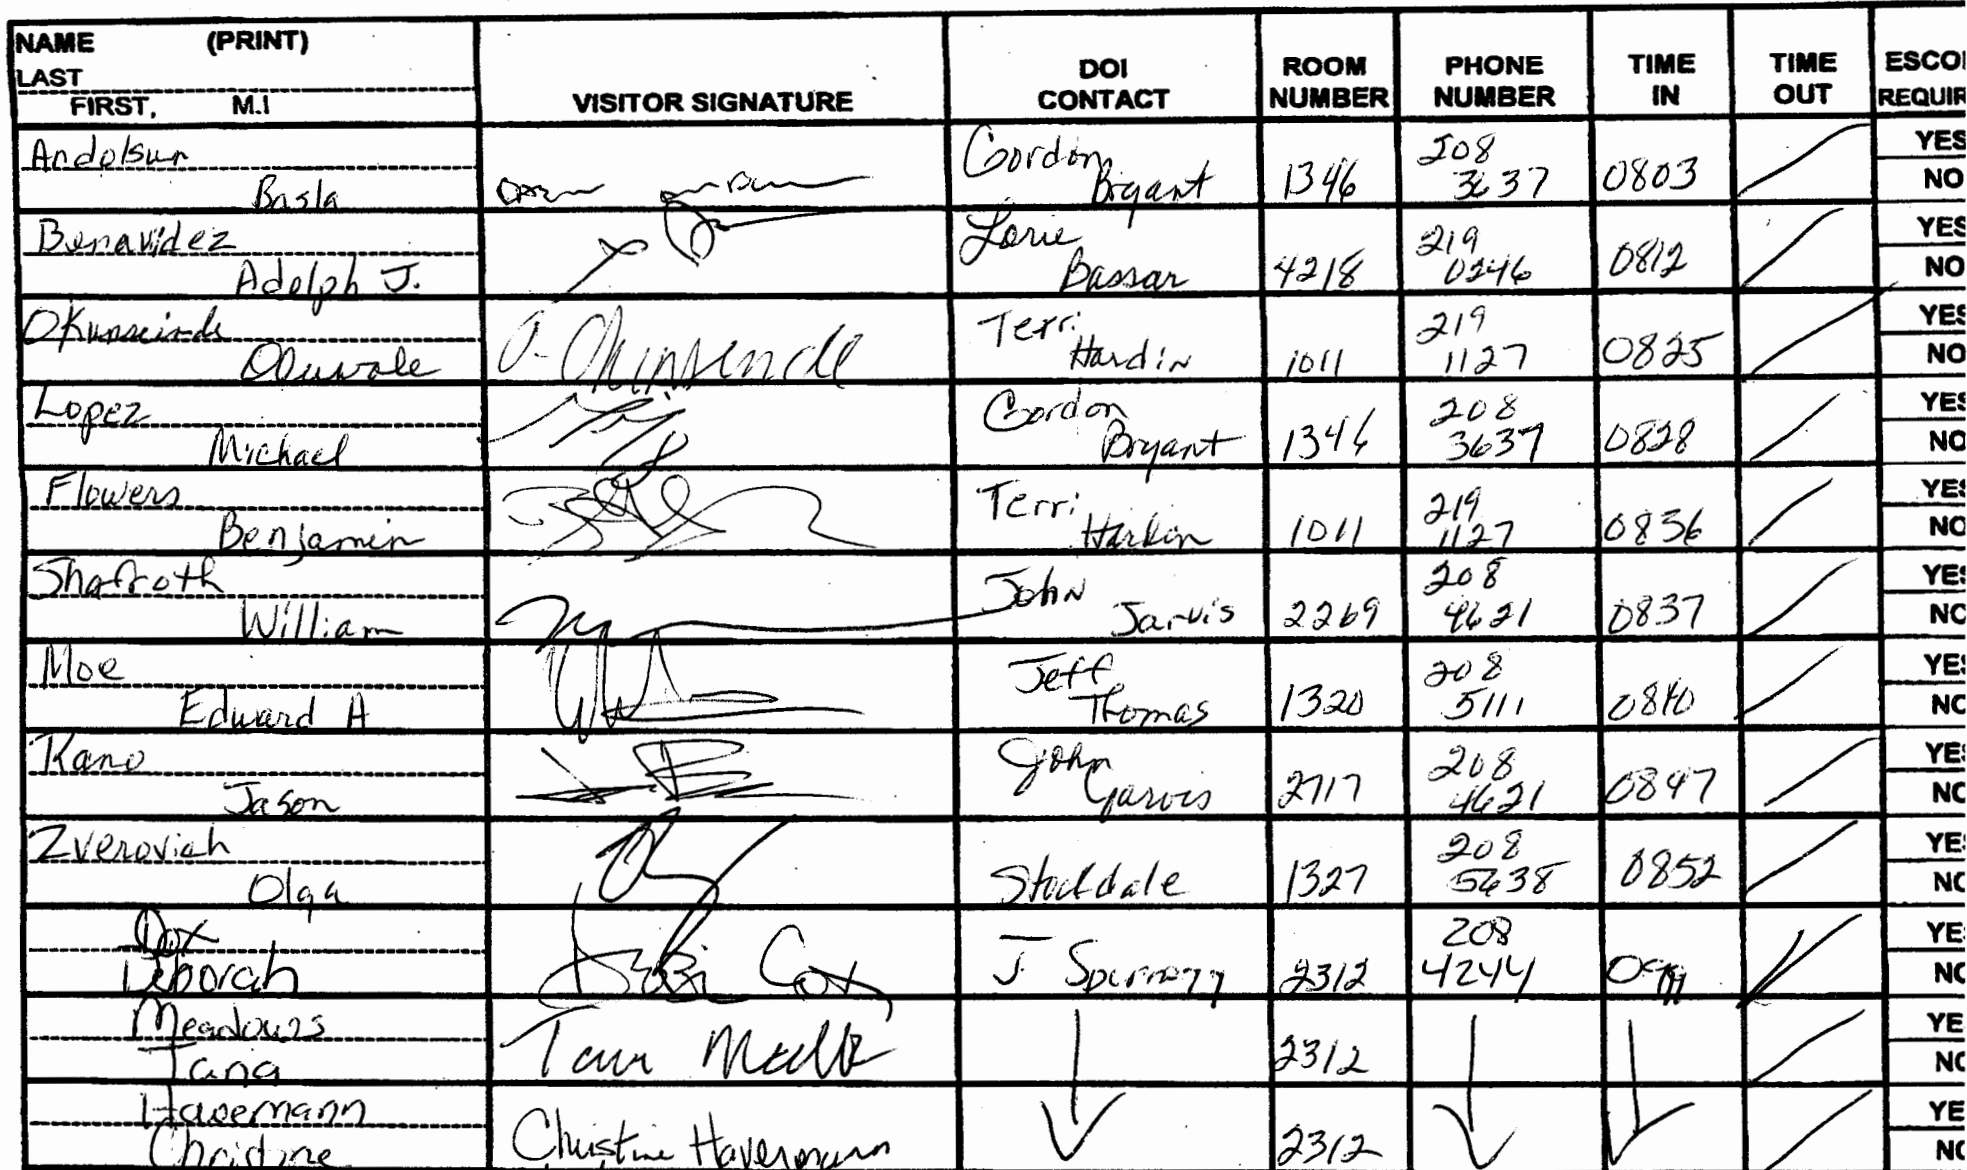 NAME (PRINT)
LAST
FIRST, M.I
VISITOR SIGNATURE
DOI
CONTACT
ROOM
NUMBER
PHONE
NUMBER
TIME
IN
TIME
OUT
ESCO
REQUIR
Andolsun
Basla
Gordon
Bryant
1346
208
3637
0803
YES
NO
Benavidez
Adolph J.
Lorie
Bassar
4218
219
0246
0812
YES
NO
Oluwole
Terri
Hardin
1011
219
1127
0825
YES
NO
Lopez
Michael
Gordon
Bryant
1346
208
3637
0828
YES
NO
Flowers
Benjamin
Terri
1011
219
1127
0836
YES
NO
Shafroth
William
John
Jarvis
2269
208
4621
0837
YES
NO
Moe
Edward A
Jeff
Thomas
1320
208
5111
0840
YES
NO
Kano
Jason
John
Garvis
2717
208
4621
0847
YES
NO
Zverovich
Olga
Stockdale
1327
208
5638
0852
YE
NO
Deborah
Debi Cox
J.
2312
208
4244
YE
NO
Meadows
Tana
2312
YE
NO
Havemann
Christine
Christine Havemann
2312
YE
NO